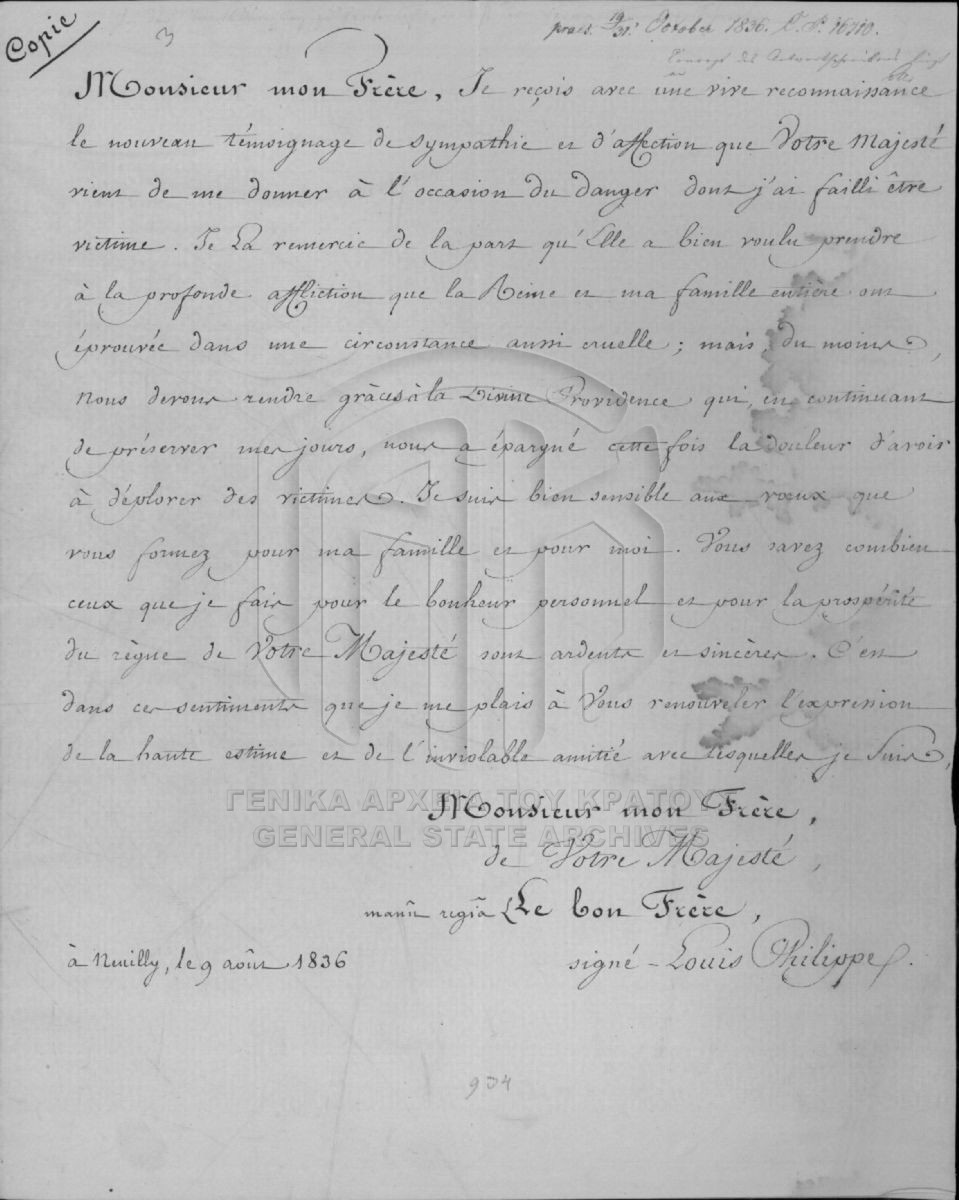 Copie
3
praes. 19/31. October 1836. N. 16710.
Monsieur mon Frère, Je reçois avec une vive reconnaissance
le nouveau témoignage de sympathie et d'affection que Votre Majesté
vient de me donner à l'occasion du danger dont j'ai failli être
victime. Je La remercie de la part qu'Elle a bien voulu prendre
à la profonde affliction que la Reine et ma famille entière ont
éprouvée dans une circonstance aussi cruelle; mais, du moins,
nous devons rendre grâces à la Divine Providence qui, en continuant
de préserver mes jours, nous a épargné cette fois la douleur d'avoir
à déplorer des victimes. Je suis bien sensible aux vœux que
vous formez pour ma famille et pour moi. Vous savez combien
ceux que je fais pour le bonheur personnel et pour la prospérité
du règne de Votre Majesté sont ardents et sincères. C'est
dans ces sentiments que je me plais à Vous renouveler l'expression
de la haute estime et de l'inviolable amitié avec lesquelles je suis,
ΓΕΝΙΚΑ ΑΡΧΕΙΑ ΤΟΥ ΚΡΑΤΟΥΣ
GENERAL STATE ARCHIVES
Monsieur mon Frère,
de Votre Majesté,
manû regiâ (Le bon Frère,
à Neuilly, le 9 août 1836
signé - Louis Philippe.
934